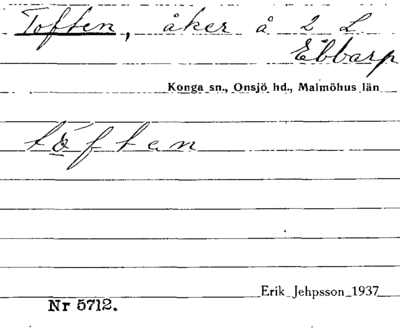 Toften, åker å 2 L
Ebbarp
Konga sn., Onsjö hd., Malmöhus län
Erik Jehpsson 1937
Nr 5712.